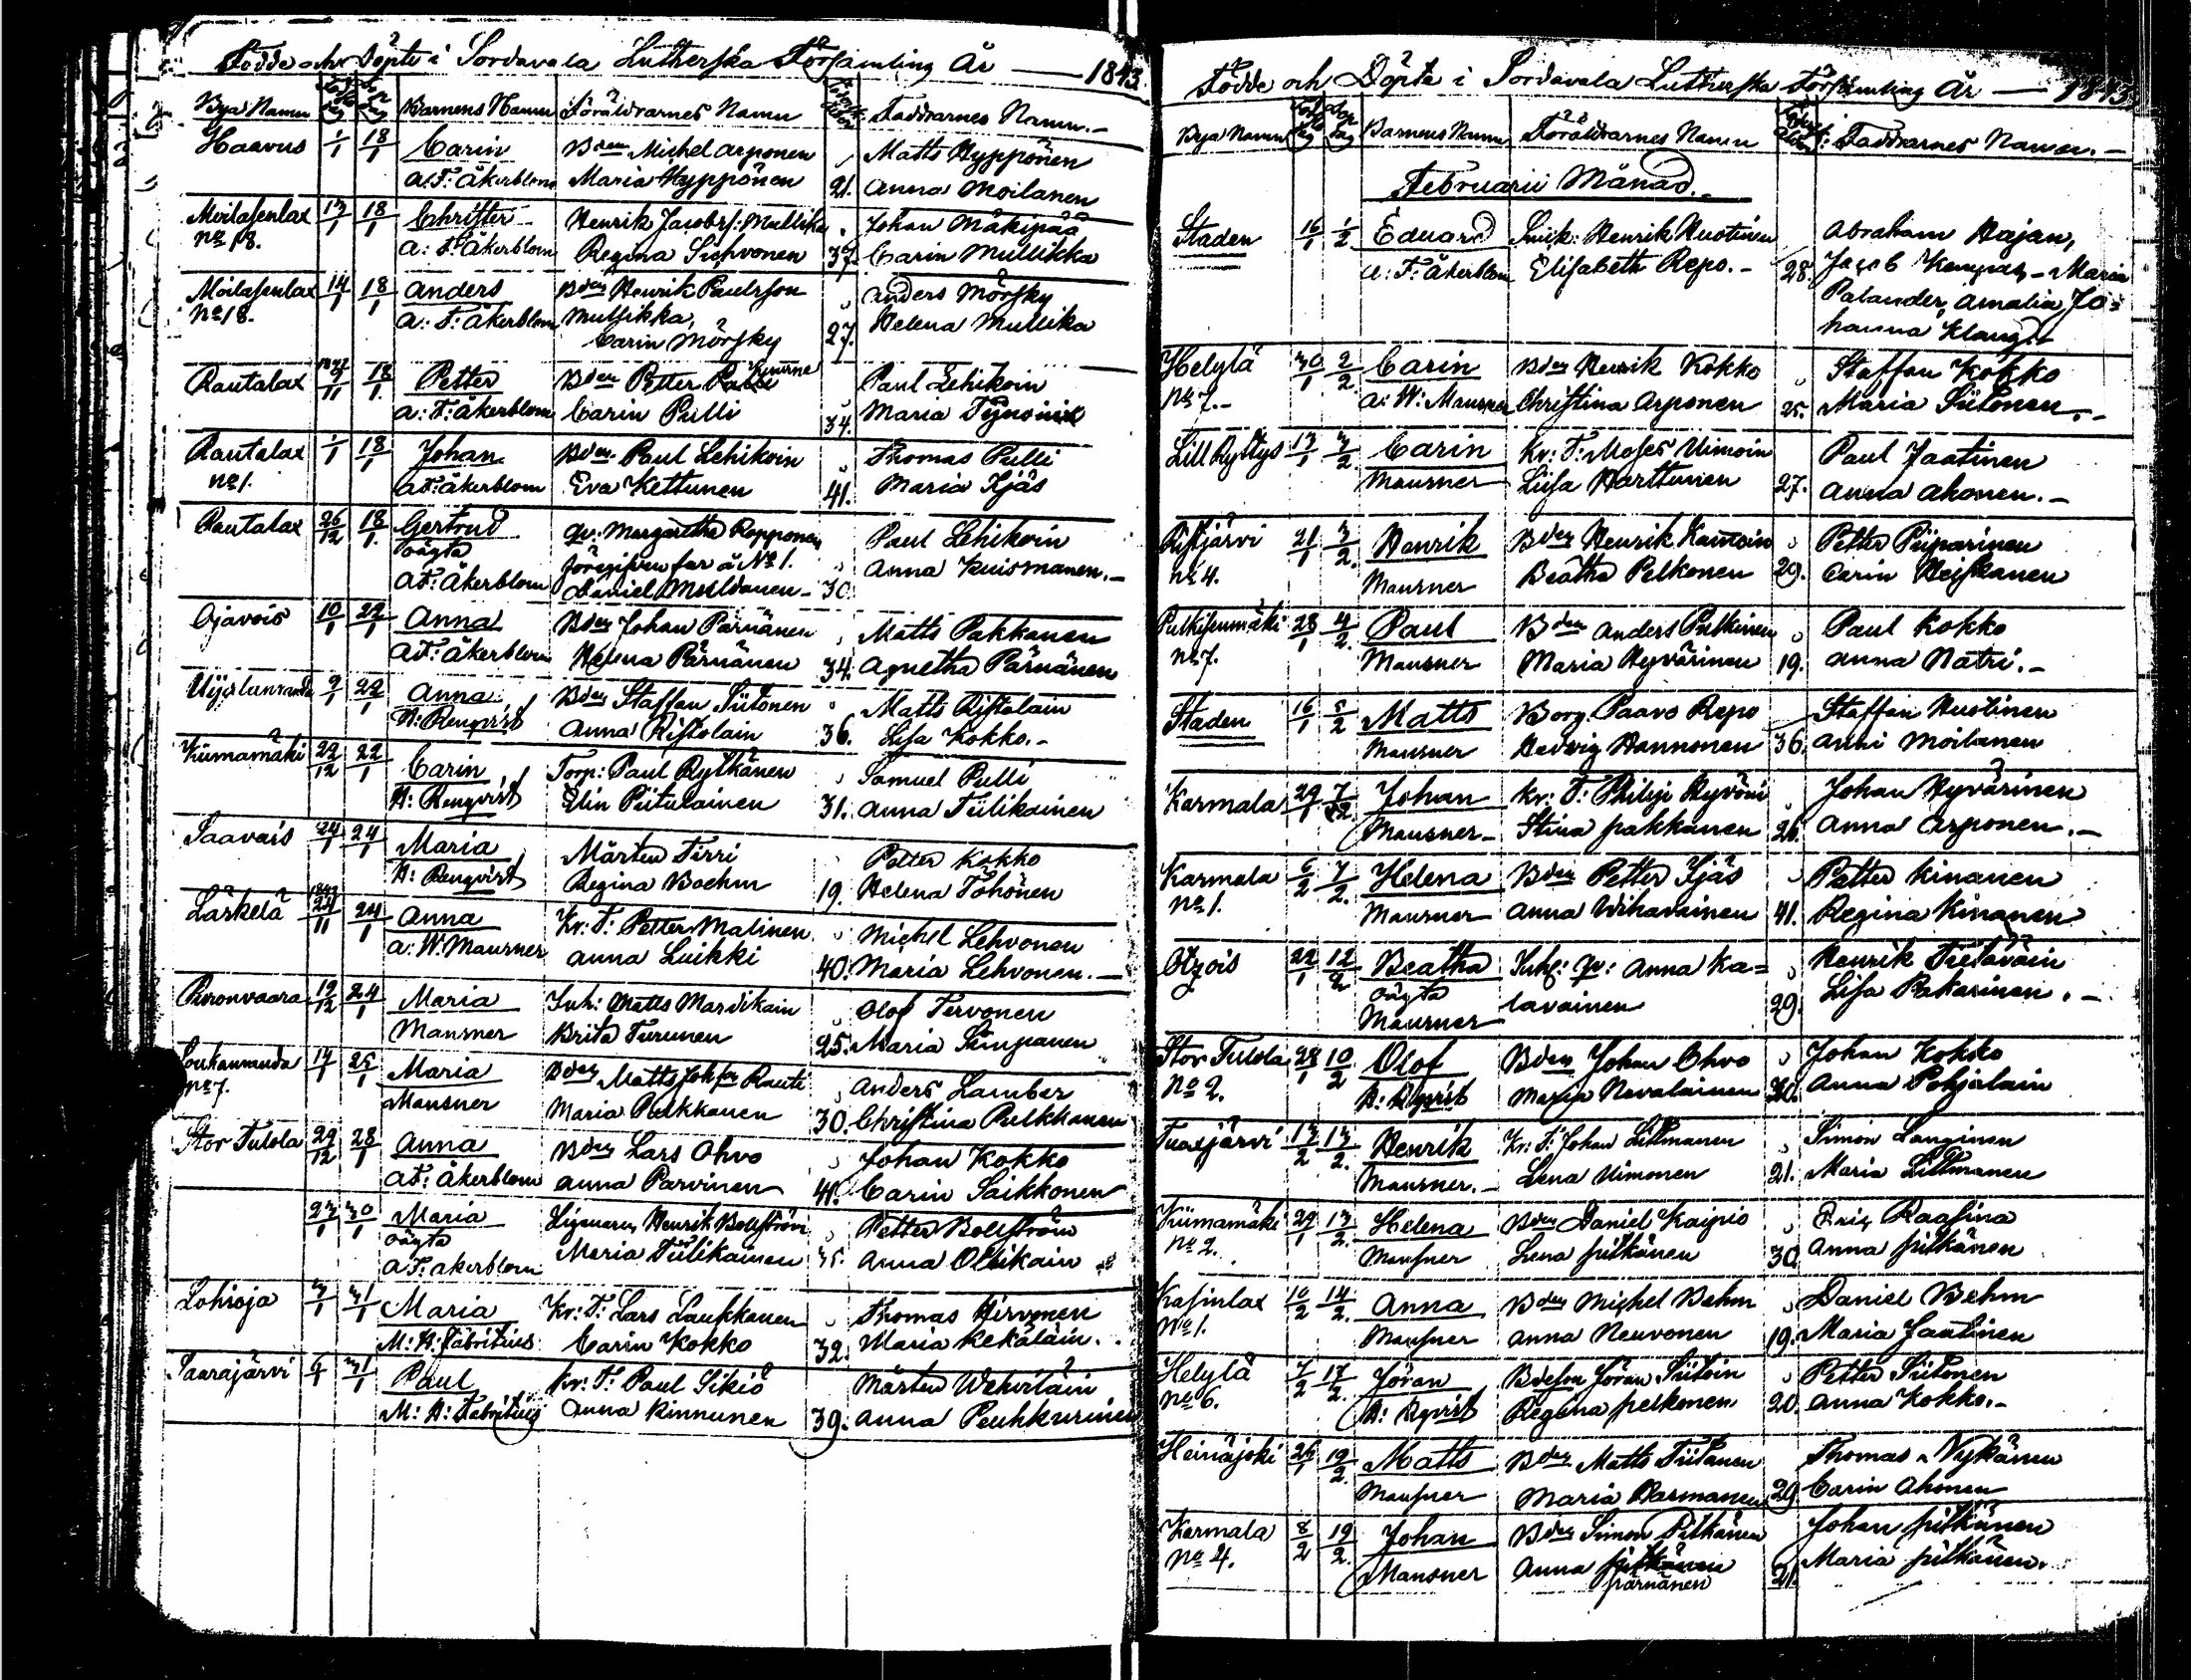 Födde och Döpte i Sordavala Lutherska Församling År — 1843.
Bya Namn Barnens Namn Föräldrarnes Namn Faddrarnes Namn.-
Haavus 1/1 18/1 Carin Bden Michel Arponen Matts Hyppönen
A: F: Åkerblom Maria Hyppönen 21. Anna Moilanen
Moilasenlax 13/1 18/1 Christer Henrik Jacobss: Mullikka Johan Mäkipää
No 18. A: F: Åkerblom Regina Sichvonen 37. Carin Mullikka
Moilasenlax 14/1 18/1 Anders Bden Henrik Paulsson Anders Mörsky
No 18. A: F: Åkerblom Mullikka, 27. Helena Mullika
Carin Mörsky
Rautalax 18/1 Petter Bden Petter Paul Lehikoin
A: F: Åkerblom Carin Pulli 34. Maria
Rautalax 1/1 18/1 Johan Bden Paul Lehikoin Thomas Pulli
No 1. A F: Åkerblom Eva Kettunen 41. Maria Ijäs
Rautalax 26/12 18/1. Gertrud Qv: Margaretha Ropponen Paul Lehikoin
oägta föregifven far å No 1. Anna Kuismanen.-
A F: Åkerblom Daniel 30.
Ojavois 10/1 22/1 Anna Bden Johan Pärnänen Matts Pakkanen
A F: Åkerblom Helena Pärnänen 34. Agnetha Pärnänen
9/1 22/1 Anna Bden Staffan Siitonen Matts Ristolain
H: Renqvist Anna Ristolain 36. Lisa Kokko.-
Kiimamäki 22/12 22/1 Carin Torp: Paul Rytkänen Samuel Pulli
H: Renqvist Elin Piitulainen 31. Anna Tiilikainen
Saavais 24/1 24/1 Maria Mårten Tirri Petter Kokko
H: Renqvist Regina Boehm 19. Helena Töhönen
Läskelä 24/1 Anna Kv: F: Petter Malinen Michel Lehvonen
A: W. Mausner Anna Luikki 40. Maria Lehvonen.-
Pironvaara 19/12 24/1 Maria Inh: Matts Mardikain Olof Tervonen
Mausner Brita Turunen 25. Maria Simpanen
17/1 25/1 Maria Bden Matts Johss Rauti Anders Lambar
No 7. Mausner Maria Pulkkanen 30. Christina Pulkkanen
Stor Tulola 29/12 28/1 Anna Bden Lars Ohvo Johan Kokko
A F: Åkerblom Anna Parvinen 41. Carin Saikkonen
23/1 30/1 Maria Henrik Bollström Petter Bollström
oägta Maria Tiilikainen 35. Anna Ollikain
A F. Åkerblom
Lohioja 3/1 31/1 Maria Kv: F: Lars Laukkanen Thomas Hirvonen
M: H: Fabritius Carin Kokko 32. Maria Kekäläin.
Saarajärvi 6/1 31/1 Paul Kv: F: Paul Sikiö Mårten Wehviläin
M: H: Fabritius Anna Kinnunen 39. Anna Peuhkurinen
Födde och Döpta i Sordavala Lutherska Församling År — 1843.
Bya Namn Barnens Namn Föräldrarnes Namn Faddrarnes Namn.-
Februarii Månad.-
Staden 16/1 1/2 Eduard Smik: Henrik Huotinen Abraham Hajan,
A: F: Åkerblom Elisabeth Repo.- 28. Jacob Maria
Palander, Amalia Jo=
hanna
Helylä 30/1 2/2 Carin Bden Henrik Kokko Staffan Kokko
No 7.- A: W: Mausner Christina Arponen 25. Maria Siitonen.-
Lill Ryttys 13/1 3/2 Carin Kv: F: Moses Uimoin Paul Jaatinen
Mausner Liisa Harttunen 27. Anna Ahonen.-
21/1 3/2. Henrik Bden Henrik Kautoin Petter Piiparinen
No 4. Mausner Beatha Pelkonen 29. Carin Heiskanen
Pulkisenmäki 28/1 4/2. Paul Bden Anders Pulkinen Paul Kokko
No 7. Mausner Maria Hyvärinen 19. Anna Natri.-
Staden 16/1 5/2 Matts Borg. Paavo Repo Staffan Huotinen
Mausner Hedvig Hannonen 36. Anni Moilanen
Karmala 29/1 7/2. Johan Kv: F: Philip Hyvöni Johan Hyvärinen
Mausner- Stina Pakkanen 26. Anna Arponen.-
Karmala 6/2 7/2. Helena Bden Petter Ijäs Petter Kinanen
No 1. Mausner Anna Wihavainen 41. Regina Kinanen
Otsois 22/1 12/2 Beatha Inh: Qv: Anna Ka= Henrik Tietäväin
oägta lavainen 29. Lisa Pakarinen.-
Mausner
Stor Tulola 28/1 10/2 Olof Bden Johan Ohvo Johan Kokko
No 2. H: Rqvist Maria Navalainen 30. Anna Pohjolain
Tuoxjärvi 13/2 13/2. Henrik Kv: F. Johan Littmanen Simon Langinen
Mausner.- Lena Uimonen 21. Maria Littmanen
Kiimamäki 29/1 13/2. Helena Bden Daniel Kaipio Eric Raasina
No 2. Mausner Lena Pitkänen 30. Anna Pitkänen
Kasinlax 10/2 14/2. Anna Bden Michel Behm Daniel Behm
No 1. Mausner Anna Neuvonen 19. Maria Jaatinen
Helylä 7/2 17/2. Jöran Bdesn Jöran Siitoin Petter Siitonen
No 6. H: Rqvist Regina Pelkonen 20. Anna Kokko.-
Heinäjoki 26/1 19/2. Matts Bden Matts Tiitanen Thomas Nykänen
Mausner Maria Harmanen 29. Carin Ahonen
Karmala 8/2 19/2. Johan Bden Simon Pitkänen Johan Pitkänen
No 4. Mausner Anna Pitkänen 21. Maria Pitkänen.
Pärnänen